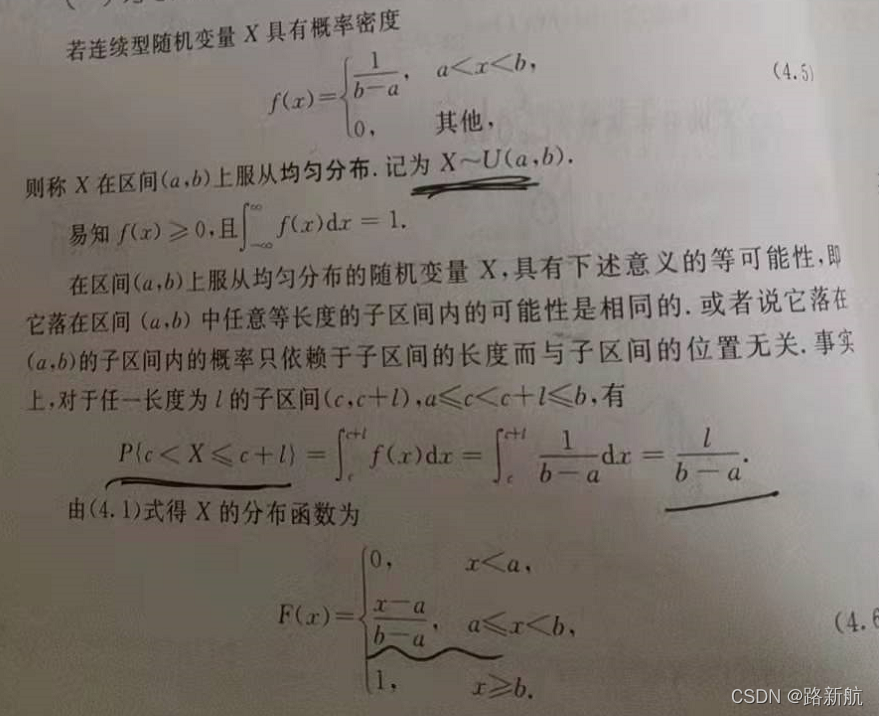 若连续型随机变量 X 具有概率密度
f(x)={ 1/(b-a), a<x<b,
0, 其他,
(4.5)
则称 X 在区间(a,b)上服从均匀分布.记为 X~U(a,b).
易知 f(x)⩾0,且∫_{-∞}^{∞} f(x)dx = 1.
在区间(a,b)上服从均匀分布的随机变量 X,具有下述意义的等可能性,即
它落在区间 (a,b) 中任意等长度的子区间内的可能性是相同的.或者说它落在
(a,b)的子区间内的概率只依赖于子区间的长度而与子区间的位置无关.事实
上,对于任一长度为 l 的子区间(c,c+l),a⩽c<c+l⩽b,有
P{c<X⩽c+l} = ∫_{c}^{c+l} f(x)dx = ∫_{c}^{c+l} 1/(b-a) dx = l/(b-a).
由(4.1)式得 X 的分布函数为
F(x)={ 0, x<a,
(x-a)/(b-a), a⩽x<b,
1, x⩾b.
(4.6
CSDN @路新航